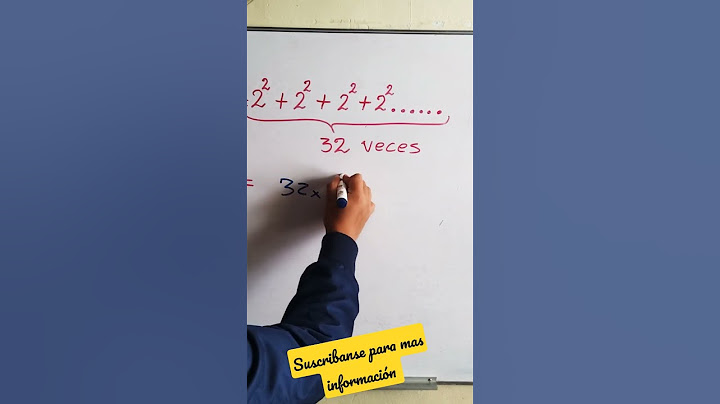 = 2² + 2² + 2² + 2²......
32 veces
= 32x
Suscribanse para mas
información